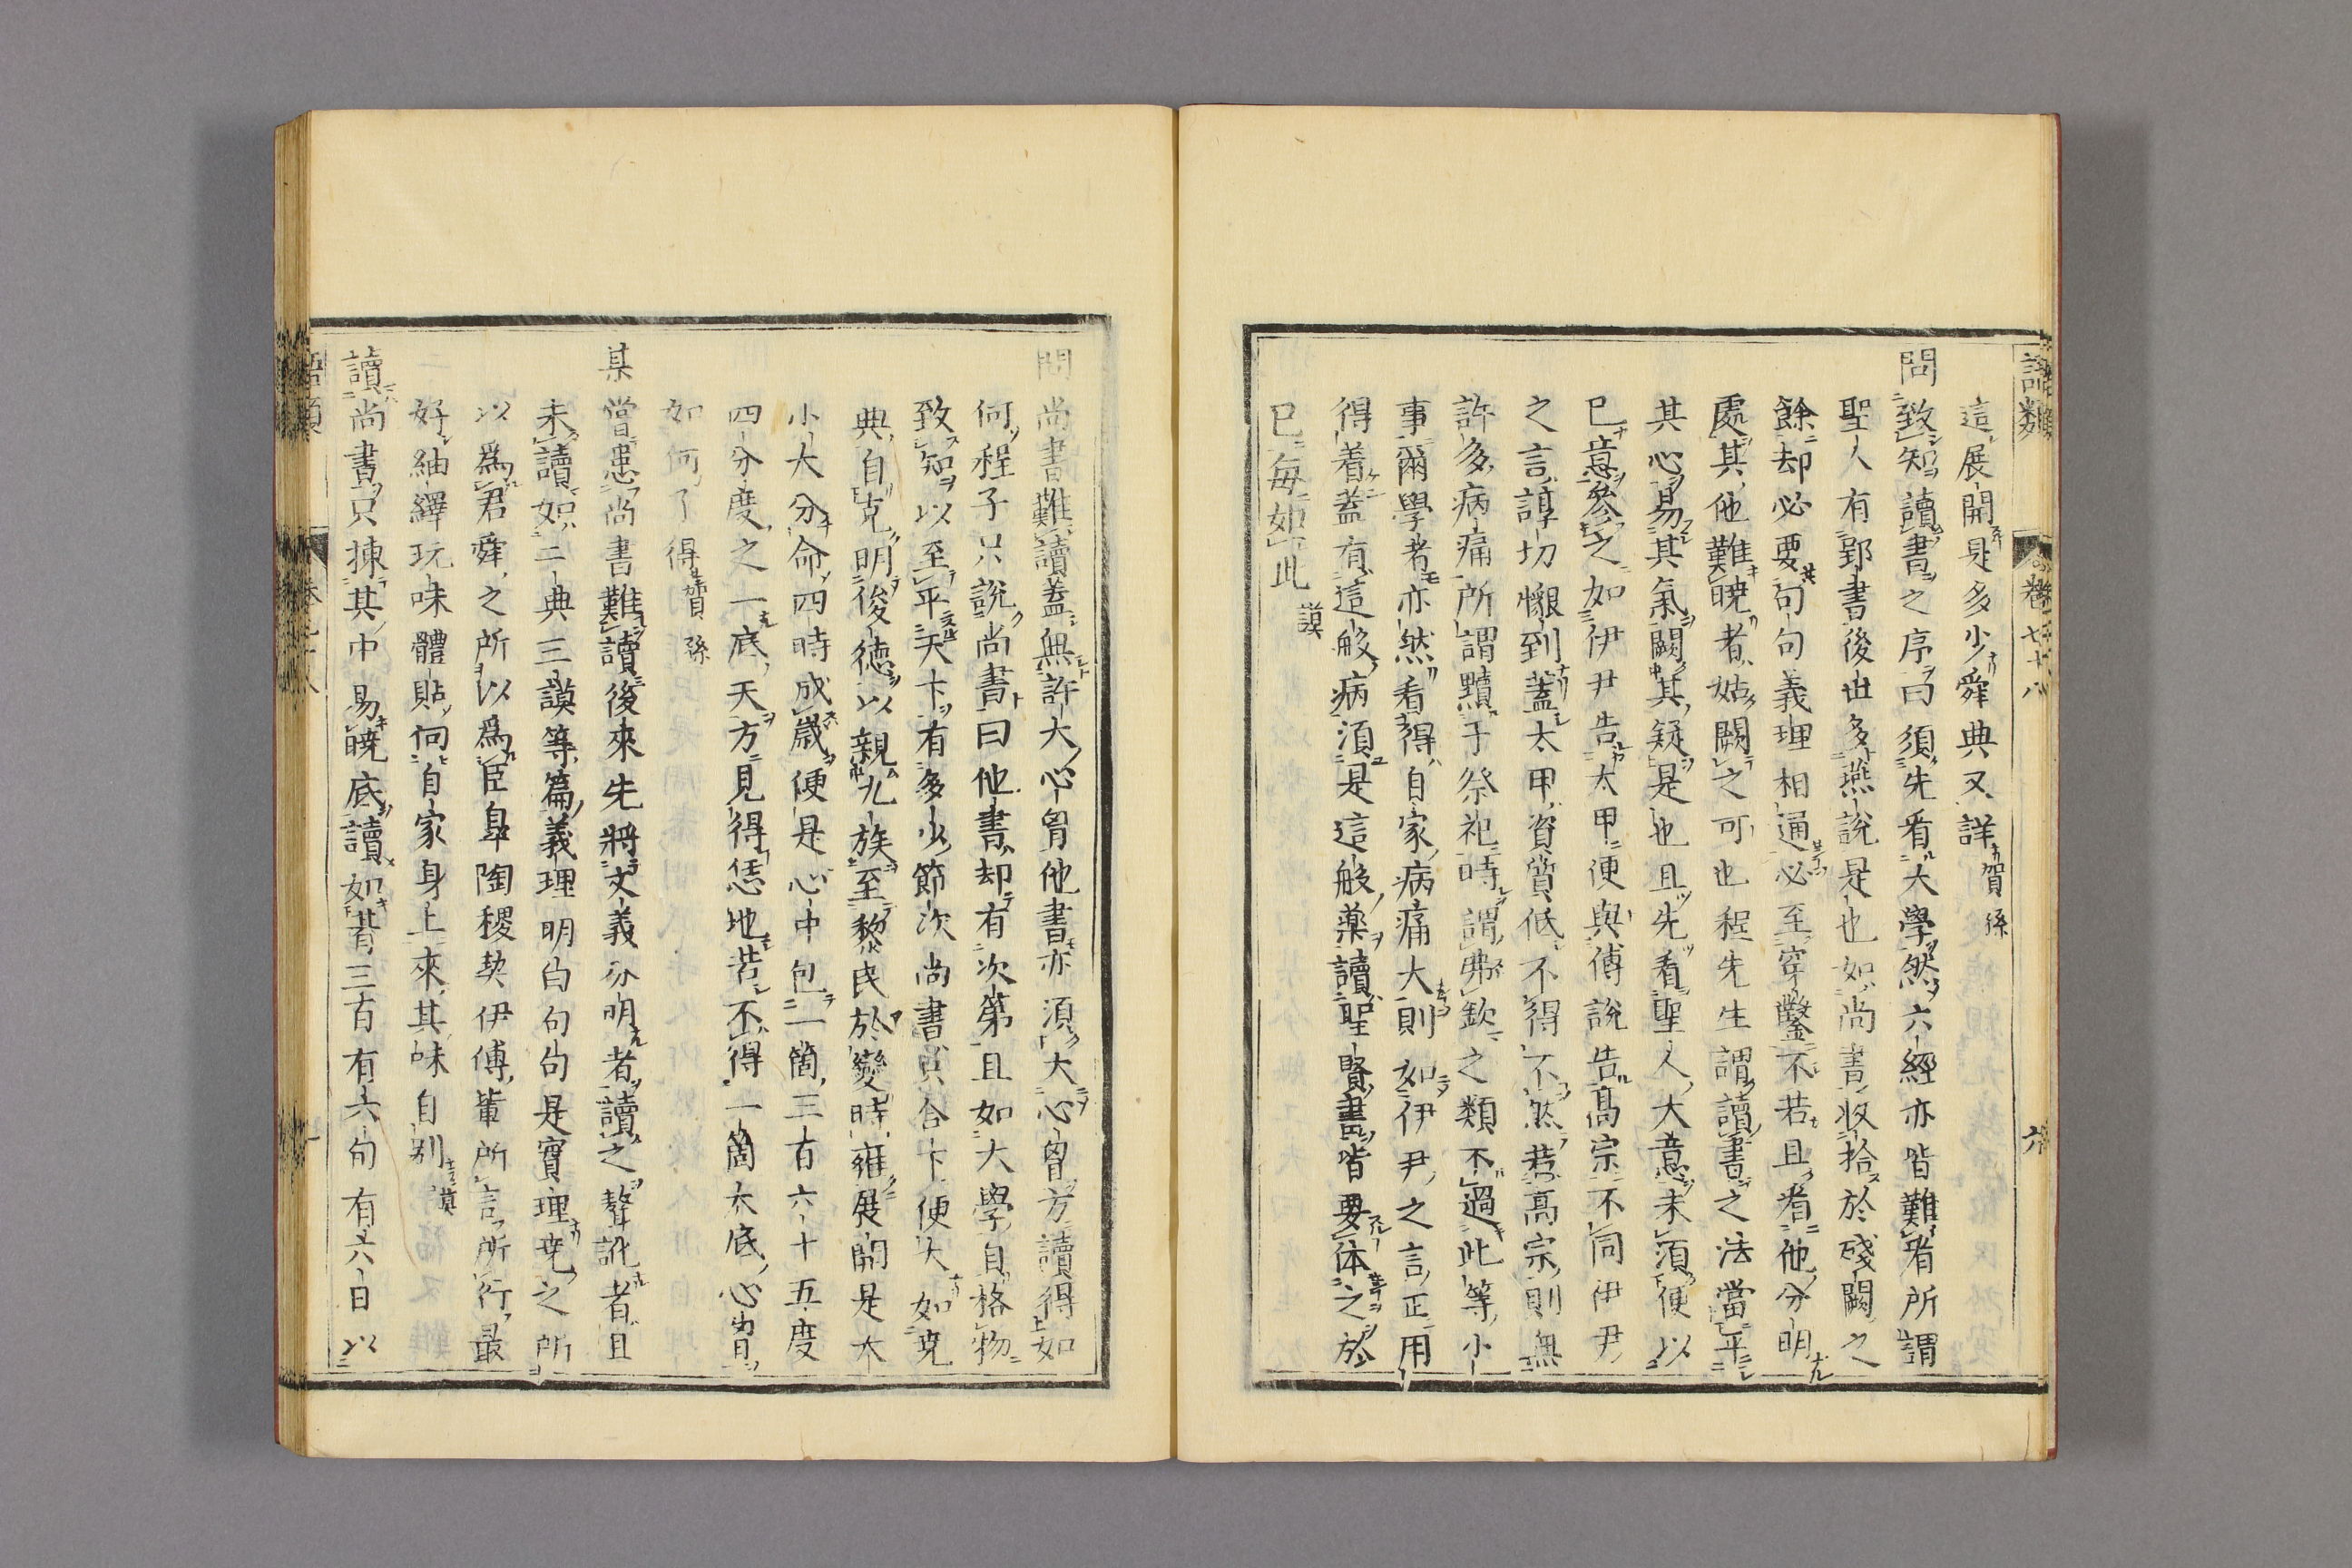 語類 卷七十八 六
這展開是多少舜典又詳賀孫
問致知讀書之序曰須先看大學然六經亦皆難看所謂
聖人有郢書後世多燕說是也如尚書收拾於殘闕之
餘却必要句句義理相通必至穿鑿不若且看他分明
處其他難曉者姑闕之可也程先生謂讀書之法當平
其心易其氣闕其疑是也且先看聖人大意未須便以
已意參之如伊尹告太甲便與傅說告高宗不同伊尹
之言諄切懇到蓋太甲資質低不得不然若高宗則無
許多病痛所謂黷于祭祀時謂弗欽之類不過此等小
事爾學者亦然看得自家病痛大則如伊尹之言正用
得着蓋有這般病須是這般藥讀聖賢書皆要体之於
已每如此謨
問尚書難讀蓋無許大心胷他書亦須大心胷方讀得如
何程子只說尚書曰他書却有次第且如大學自格物
致知以至平天下有多少節次尚書只合下便大如堯
典自克明俊徳以親九族至黎民於變時雍展開是大
小大分命四時成歲便是心中包一箇三百六十五度
四分度之一底天方見得恁地若不得一箇大底心胷
如何了得賀孫
某嘗患尚書難讀後來先將文義分明者讀之聱訛者且
未讀如二典三謨等篇義理明白句句是實理堯之所
以爲君舜之所以爲臣皐陶稷契伊傅輩所言所行最
好紬繹玩味體貼向自家身上來其味自别謨
讀尚書只揀其中易曉底讀如朞三百有六旬有六日以
語類